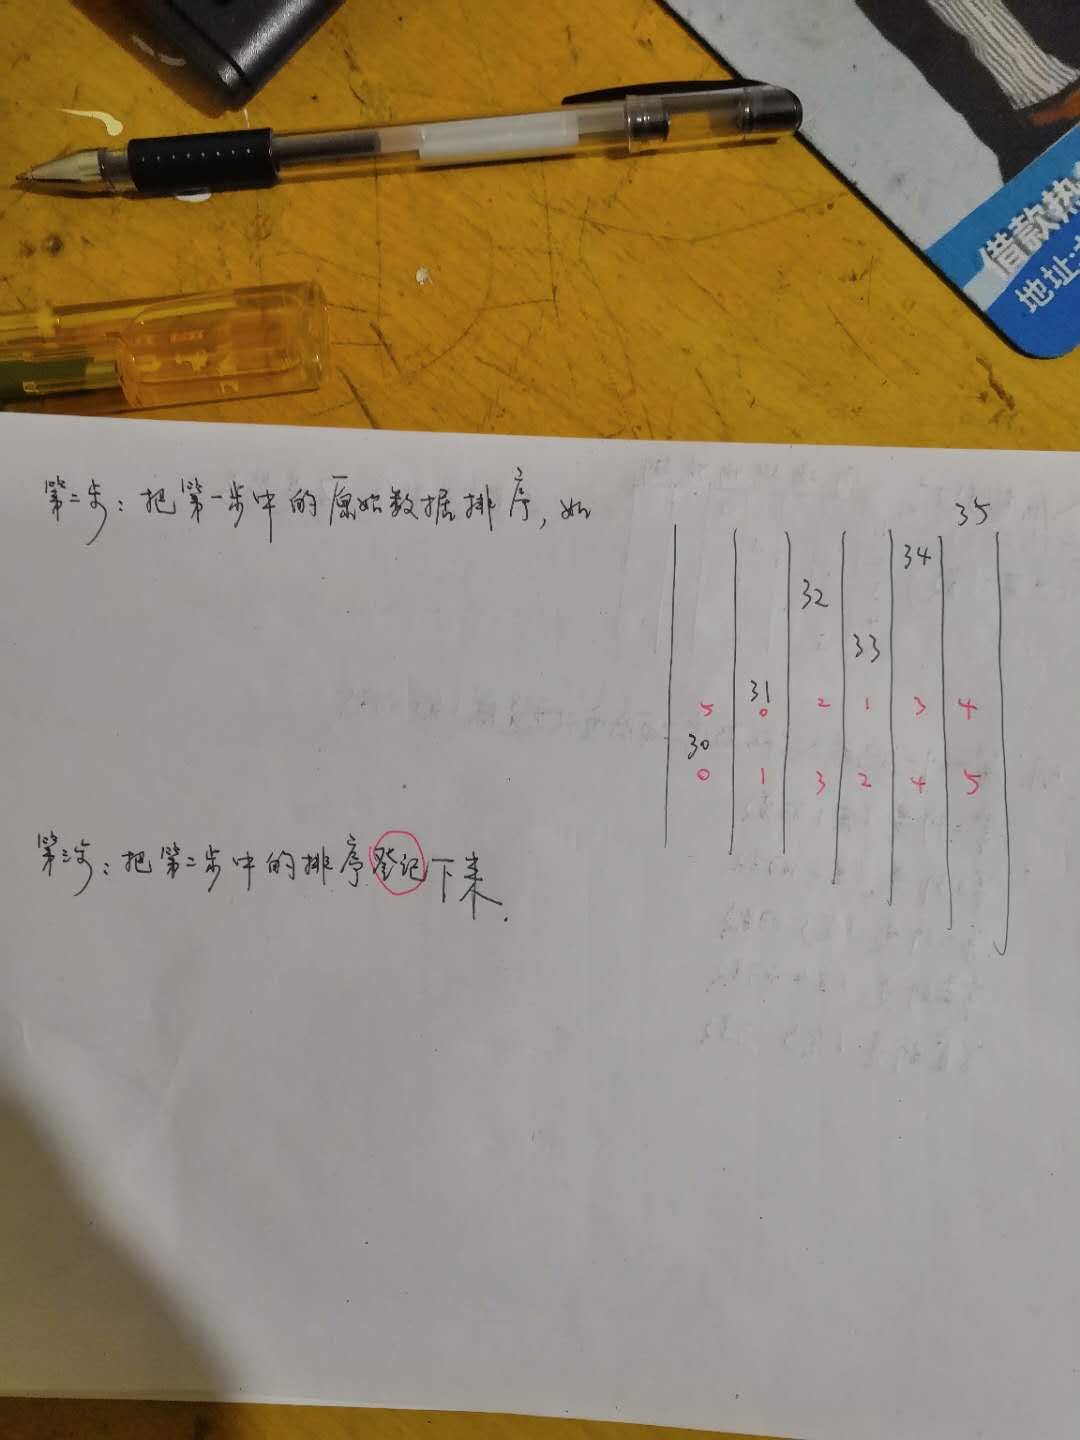 借款热
地址:
第二步：把第一步中的原始数据排序，如
35
34
32
33
31
5 0 2 1 3 4
30
0 1 3 2 4 5
第三步：把第二步中的排序登记下来.